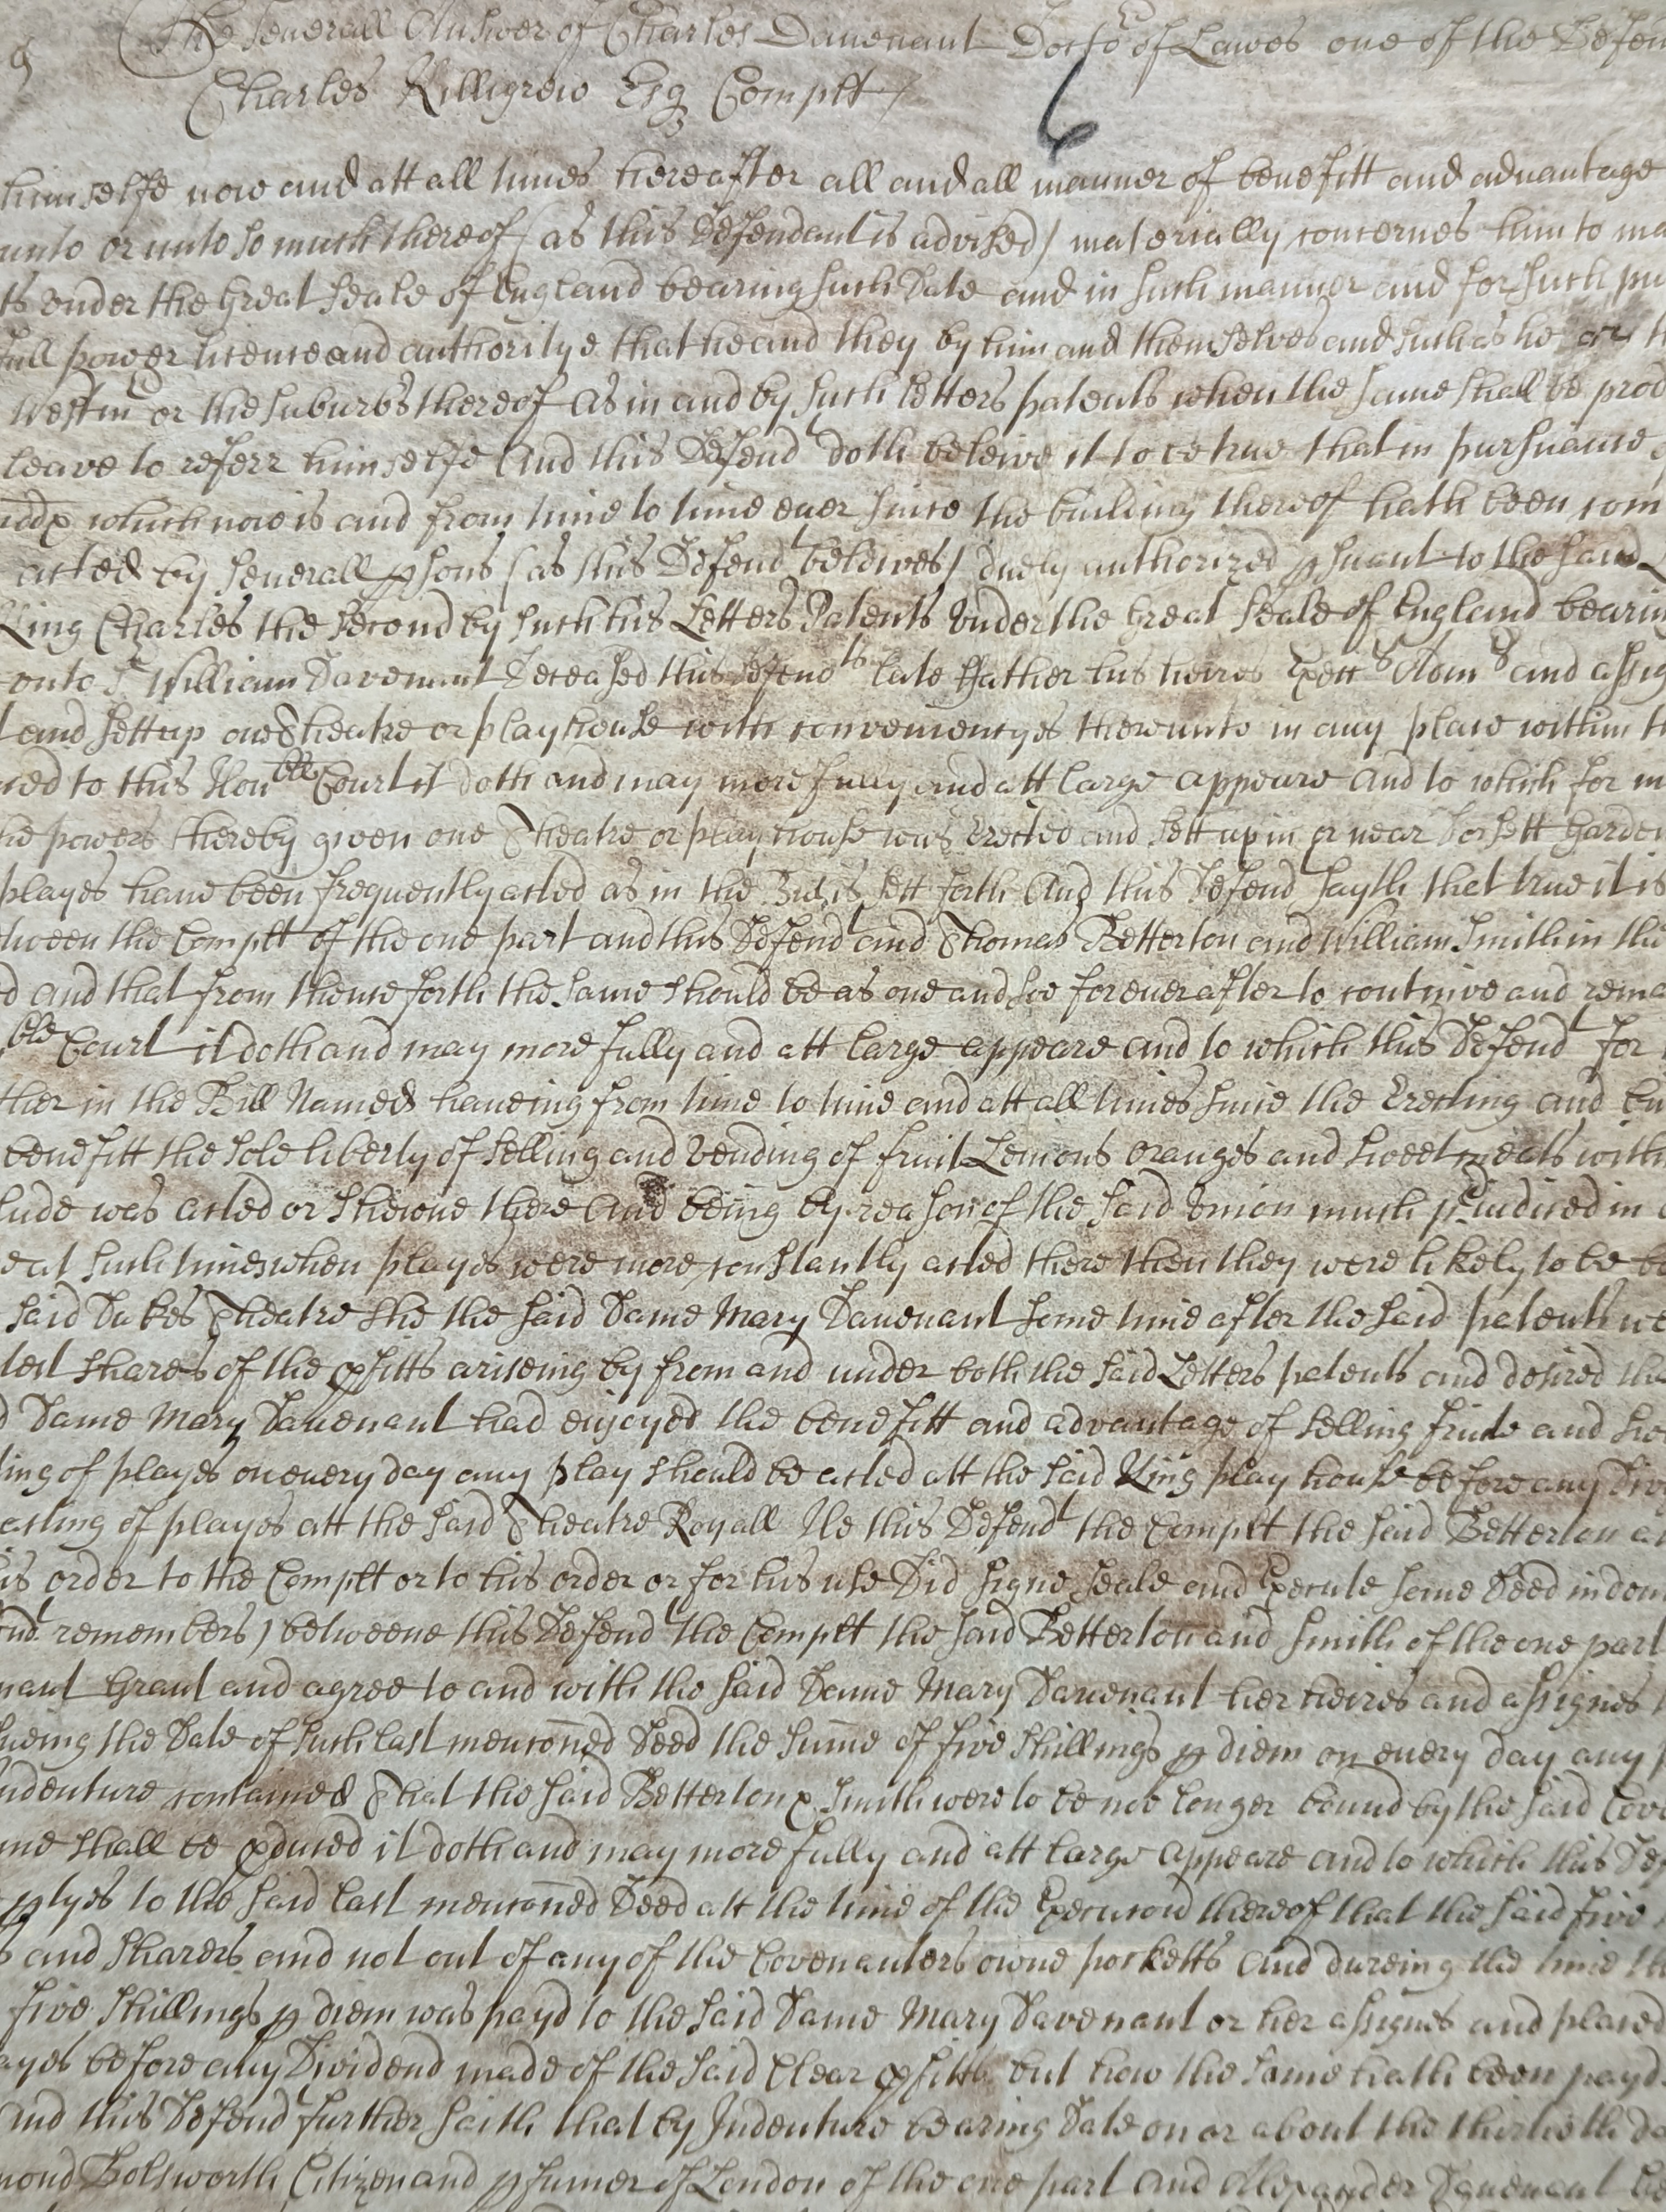 The severall Answer of Charles Davenant Doctor of Lawes one of the Defen
Charles Killigrew Esq Complt
6
himselfe now and att all times hereafter all and all manner of benefitt and advantage
unto or unto so much thereof (as this Defendant is advised) materially concernes him to ma
ts under the Great Seale of England bearing such Date and in such manner and for such pu
full power licence and authoritye that he and they by him and themselves and such as he or t
Westmr or the suburbs thereof As in and by such Letters patents when the same shall be prod
leave to referr himselfe And this Defendt doth beleive it to be true that in pursuance
iddx which now is and from time to time ever since the building thereof hath been com
acted by severall psons (as this Defendt beleives) duely authorized psuant to the said
King Charles the Second by such his Letters Patents Under the Great Seale of England bearin
onto Sr William Davenant Deceased this Defendts late ffather his heires Exectrs Admrs and assig
and sett up one Theatre or playhouse with conveniencyes thereunto in any place within th
ced to this Honble Court it doth and may more fully and att large appeare And to which for m
he powers thereby given one Theatre or playhouse was Erected and sett up in or near Dorsett Garden
playes have been frequently acted as in the Bill is sett forth And this Defendt sayth that true it is
tween the Complt of the one part and this Defendt and Thomas Betterton and William Smith in the
d and that from thenceforth the same should be as one and soe forever after to continue and rema
ble Court it doth and may more fully and att large appeare and to which this Defendt for
ther in the Bill Named haveing from time to time and att all times since the Erecting and bu
benefitt the sole liberty of selling and vending of fruit Lemons oranges and sweetmeats with
lude was acted or shewne there And being by reason of the said Union much pjudiced in
eat such times when playes were more constantly acted there then they were likely to be
said Dukes Theatre She the said Dame Mary Davenant some time after the said patents we
ted shares of the pfitts ariseing by from and under both the said Letters patents and desired tha
d Dame Mary Davenant had enjoyed the benefitt and advantage of selling fruite and
ting of playes on every day any play should be acted att the said Kings play house before any Div
acting of playes att the said Theatre Royall He this Defendt the Complt the said Betterton a
is order to the Complt or to his order or for his use Did signe seale and Execute some Deed inden
ndt remembers) betweene this Defendt the Complt the said Betterton and Smith of the one part
nant Grant and agree to and with the said Dame Mary Davenant her heires and assignes
sueing the Date of such last mentoned Deed the sume of five shillings p diem on every day any
Indenture contained That the said Betterton & Smith were to be noe longer bound by the said Cov
me shall be pduced it doth and may more fully and att large appeare and to which this Def
plyes to the said last mentoned Deed att the time of the Execution thereof that the said five
s and sharers and not out of any of the Covenanters owne pocketts And dureing the time th
five shillings p diem was payd to the said Dame Mary Davenant or her assignes and placed
ayes before any Dividend made of the said Clear pfitts but how the same hath been payd
And this Defendt further saith that by Indenture bearing Date on or about the thirtieth da
mond Bolsworth Citizen and pfumer of London of the one part and Alexander Davenant